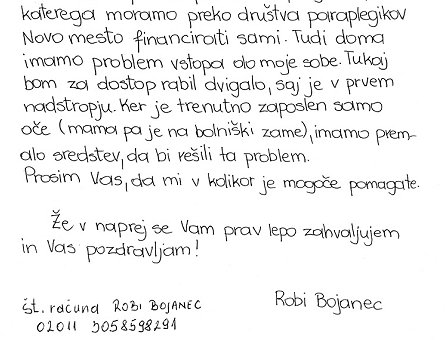 katerega moramo preko društva paraplegikov
Novo mesto financirati sami. Tudi doma
imamo problem vstopa do moje sobe. Tukaj
bom za dostop rabil dvigalo, saj je v prvem
nadstropju. Ker je trenutno zaposlen samo
oče (mama pa je na bolniški zame), imamo prem-
alo sredstev, da bi rešili ta problem.
Prosim Vas, da mi v kolikor je mogoče pomagate.
Že v naprej se Vam prav lepo zahvaljujem
in Vas pozdravljam!
Robi Bojanec
št. računa ROBI BOJANEC
02011 3058598291